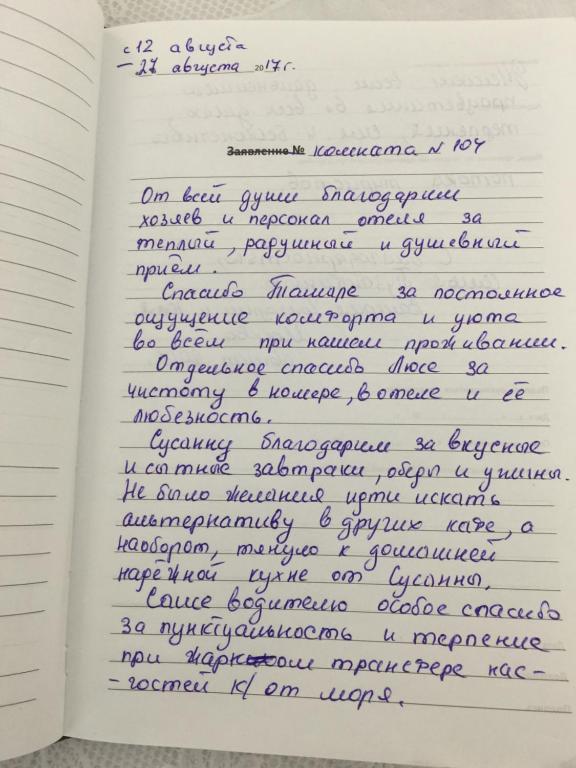 с 12 августа
– 27 августа 2017 г.
Заявление № комната № 104
От всей души благодарим
хозяев и персонал отеля за
теплый, радушный и душевный
приём.
Спасибо Тамаре за постоянное
ощущение комфорта и уюта
во всём при нашем проживании.
Отдельное спасибо Люсе за
чистоту в номере, в отеле и её
любезность.
Сусанну благодарим за вкусные
и сытные завтраки, обеды и ужины.
Не было желания идти искать
альтернативу в других кафе, а
наоборот, тянуло к домашней
надёжной кухне от Сусанны.
Саше водителю особое спасибо
за пунктуальность и терпение
при жарком трансфере нас –
– гостей к/от моря.